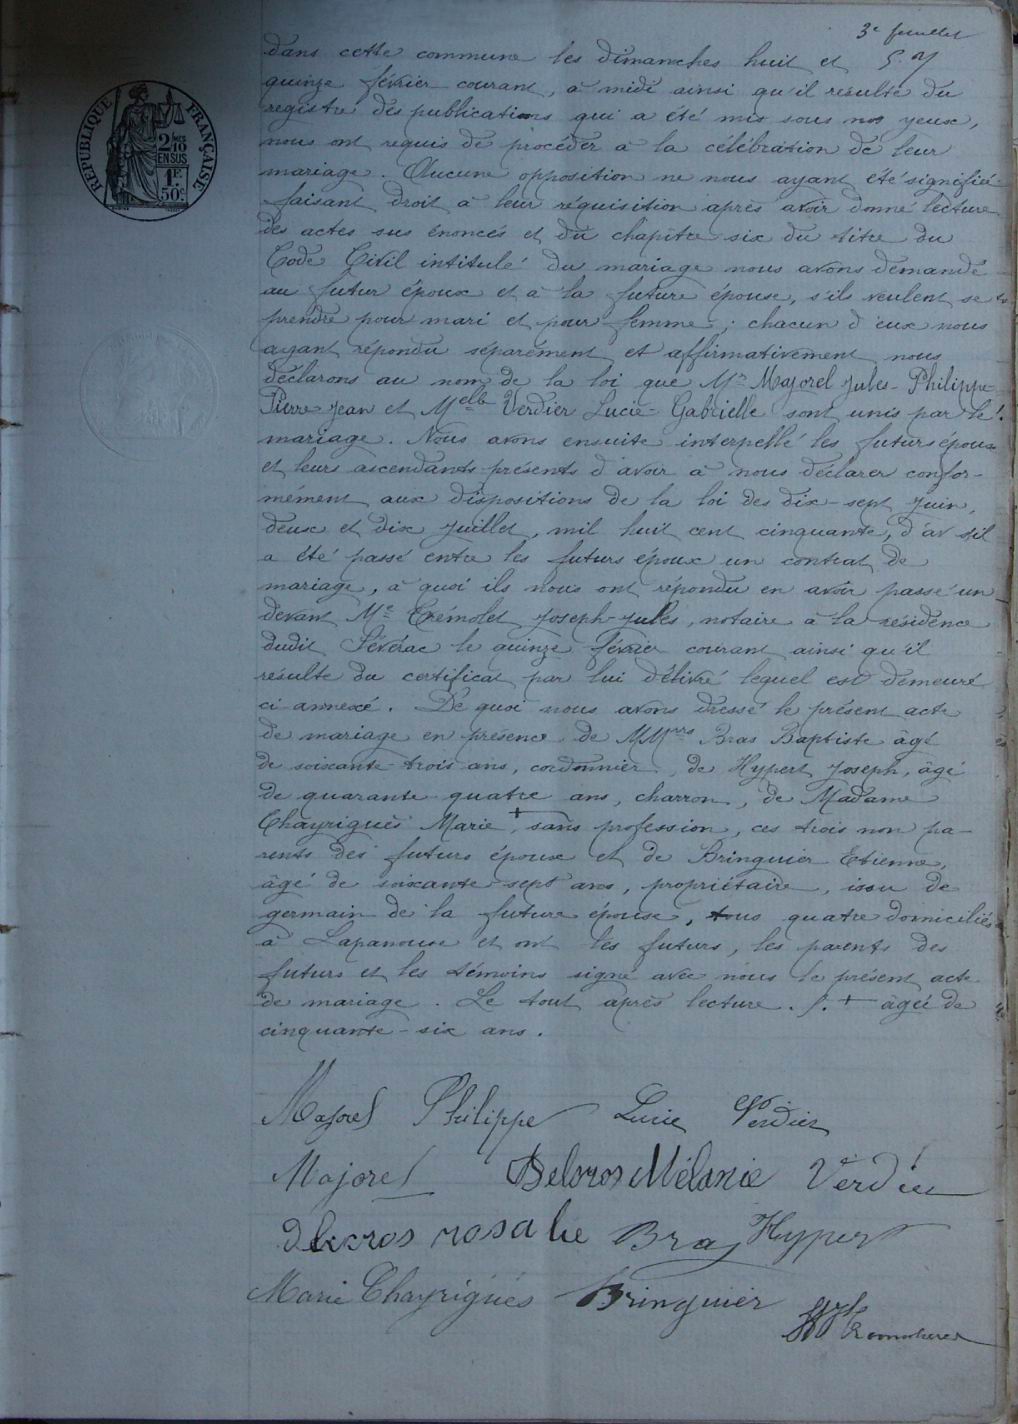 3e feuillet
dans cette commune les dimanches huit et
quinze février courant, à midi ainsi qu'il résulte du
registre des publications qui a été mis sous nos yeux,
nous ont requis de procéder à la célébration de leur
mariage. Aucune opposition ne nous ayant été signifiée
faisant droit à leur réquisition après avoir donné lecture
des actes sus énoncés et du chapitre six du titre du
Code Civil intitulé du mariage nous avons demandé
au futur époux et à la future épouse, s'ils veulent se
prendre pour mari et pour femme ; chacun d'eux nous
ayant répondu séparément et affirmativement nous
déclarons au nom de la loi que Mr Majorel Jules-Philippe-
Pierre Jean et Melle Verdier Lucie-Gabrielle sont unis par le
mariage. Nous avons ensuite interpellé les futurs époux
et leurs ascendants présents d'avoir à nous déclarer confor-
mément aux dispositions de la loi des dix-sept Juin,
deux et dix Juillet, mil huit cent cinquante, s'il
a été passé entre les futurs époux un contrat de
mariage, à quoi ils nous ont répondu en avoir passé un
devant Me Trémolet Joseph-Jules, notaire à la résidence
dudit Sévérac le quinze février courant ainsi qu'il
résulte du certificat par lui délivré lequel est demeuré
ci-annexé. De quoi nous avons dressé le présent acte
de mariage en présence de MMrs Bras Baptiste âgé
de soixante-trois ans, cordonnier, de Hypert Joseph, âgé
de quarante-quatre ans, charron, de Madame
Chayriguès Marie +, sans profession, ces trois non pa-
rents des futurs époux et de Bringuier Etienne,
âgé de soixante-sept ans, propriétaire, issu de
germain de la future épouse, tous quatre domiciliés
à Lapanouse et ont les futurs, les parents des
futurs et les témoins signé avec nous le présent acte
de mariage. Le tout après lecture. /. + âgée de
cinquante-six ans.
Majorel Philippe Lucie Verdier
Majorel Delcros Mélanie Verdier
delcros rosalie Bras Hypert
Marie Chayriguès Bringuier
RÉPUBLIQUE FRANÇAISE
2 10es
EN SUS
1F.
50c.